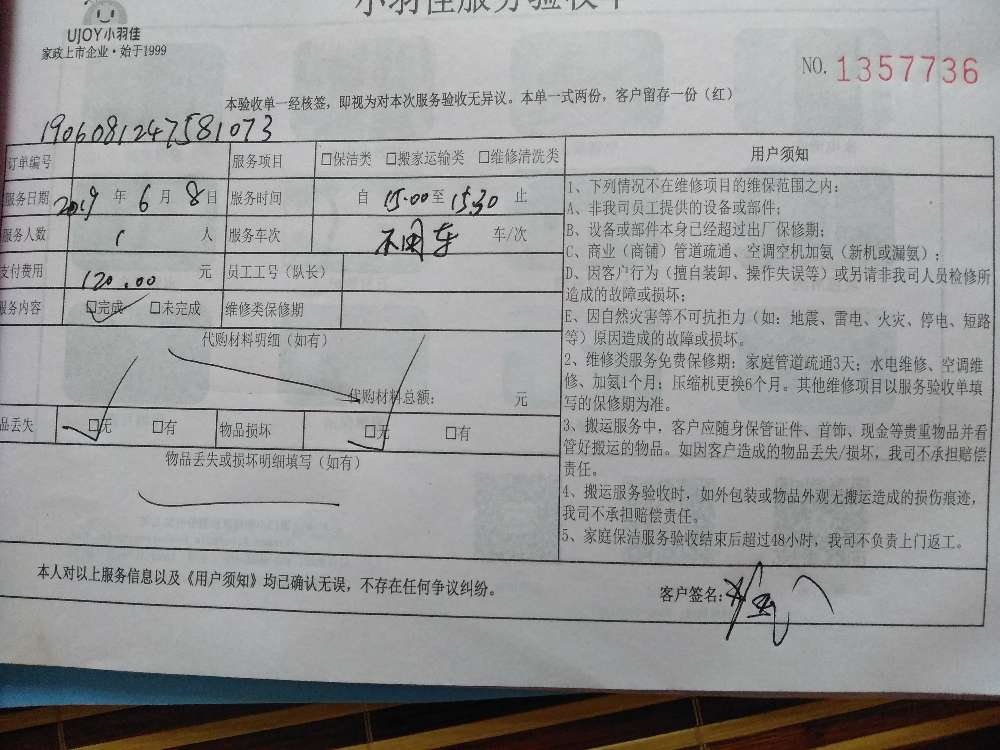 小羽佳服务验收单
UJOY小羽佳
家政上市企业·始于1999
NO. 1357736
本验收单一经核签，即视为对本次服务验收无异议。本单一式两份，客户留存一份（红）
1906081247581073
订单编号 服务项目 □保洁类 □搬家运输类 □维修清洗类
服务日期 2019 年 6 月 8 日 服务时间 自 15:00 至 15:30 止
服务人数 1 人 服务车次 不用车 车/次
支付费用 120.00 元 员工工号（队长）
服务内容 □完成 □未完成 维修类保修期
代购材料明细（如有）
代购材料总额： 元
品丢失 □无 □有 物品损坏 □无 □有
物品丢失或损坏明细填写（如有）
用户须知
1、下列情况不在维修项目的维保范围之内：
A、非我司员工提供的设备或部件；
B、设备或部件本身已经超过出厂保修期；
C、商业（商铺）管道疏通、空调空机加氨（新机或漏氨）；
D、因客户行为（擅自装卸、操作失误等）或另请非我司人员检修所
造成的故障或损坏；
E、因自然灾害等不可抗拒力（如：地震、雷电、火灾、停电、短路
等）原因造成的故障或损坏。
2、维修类服务免费保修期：家庭管道疏通3天；水电维修、空调维
修、加氨1个月；压缩机更换6个月。其他维修项目以服务验收单填
写的保修期为准。
3、搬运服务中，客户应随身保管证件、首饰、现金等贵重物品并看
管好搬运的物品。如因客户造成的物品丢失/损坏，我司不承担赔偿
责任。
4、搬运服务验收时，如外包装或物品外观无搬运造成的损伤痕迹，
我司不承担赔偿责任。
5、家庭保洁服务验收结束后超过48小时，我司不负责上门返工。
本人对以上服务信息以及《用户须知》均已确认无误，不存在任何争议纠纷。
客户签名：